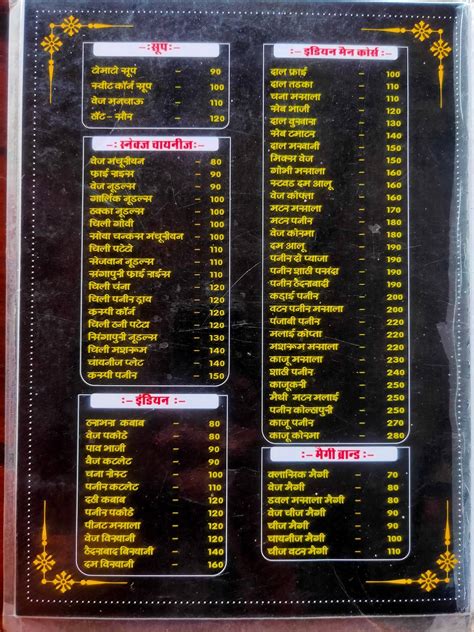 -:सूप:-
टोमाटो सूप - 90
स्वीट कॉर्न सूप - 100
वेज मनचाऊ - 110
हॉट-सॉर - 120
-: स्नेक्ज चायनीज:-
वेज मंचूरीयन - 80
फ्राई राईस - 90
वेज नूडल्स - 90
गार्लिक नूडल्स - 100
हक्का नूडल्स - 100
चिली गोबी - 100
सोया चन्कस मंचूरीयन - 100
चिली पटेटो - 110
सेजवान नूडल्स - 110
सिंगापुरी फ्राई राईस - 110
चिली चना - 110
चिली पनीर ड्राय - 120
क्रिस्पी कॉर्न - 120
चिली हनी पटेटा - 120
सिंगापुरी नूडल्स - 120
चिली मशरूम - 130
चायनीज प्लेट - 140
क्रिस्पी पनीर - 150
-: इंडियन :-
हराभरा कबाब - 80
वेज पकोडे - 80
पाव भाजी - 90
वैज कटलेट - 90
चना रोस्ट - 100
पनीर कटलेट - 110
दही कबाब - 120
पनीर पकोडे - 120
पीनट मसाला - 120
वेज बिरयानी - 120
हैदराबाद बिरयानी - 140
दम बिरयानी - 160
-: इंडियन मेन कोर्स :-
दाल फ्राई - 100
दाल तडका - 110
चना मसाला - 120
सेब भाजी - 120
दाल बुखारा - 130
सेब टमाटर - 140
दाल मखनी - 150
मिक्स वेज - 150
गोभी मसाला - 160
दम आलू - 160
वेज कोफ्ता - 160
मटर मसाला - 170
मटर पनीर - 190
वेज कोरमा - 190
दम आलू - 190
पनीर दो प्याजा - 190
पनीर शाही पसंदा - 190
पनीर हैदराबादी - 190
कड़ाई पनीर - 200
बटर पनीर मसाला - 200
पंजाबी पनीर - 200
मलाई कोफ्ता - 220
मशरूम मसाला - 230
काजू मसाला - 250
शाही पनीर - 250
काजूकरी - 250
मैथी मटर मलाई - 250
पनीर कोल्हापुरी - 250
काजू पनीर - 260
काजू कोरमा - 280
-: मैगी ब्रान्ड :-
क्लासिक मैगी - 70
वेज मैगी - 80
डबल मसाला मैगी - 80
वेज चीज मैगी - 90
चीज मैगी - 90
चायनीज मैगी - 100
चीज बटर मैगी - 110